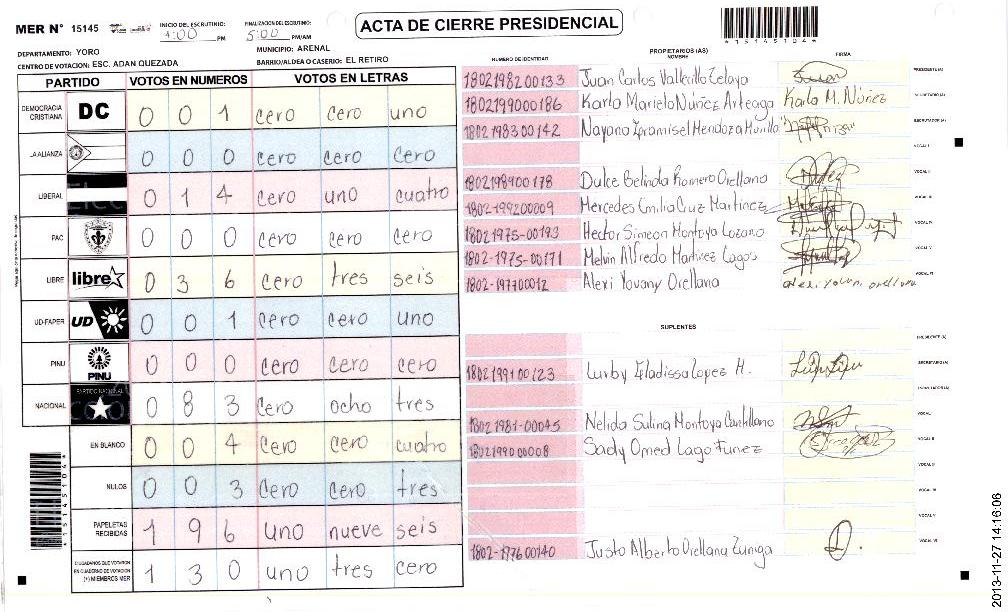 MER N° 15145
INICIO DEL ESCRUTINIO: 4:00 PM
FINALIZACION DEL ESCRUTINIO: 5:00 PM/AM
ACTA DE CIERRE PRESIDENCIAL
*15145104*
DEPARTAMENTO: YORO
MUNICIPIO: ARENAL
CENTRO DE VOTACION: ESC. ADAN QUEZADA
BARRIO/ALDEA O CASERIO: EL RETIRO
PARTIDO VOTOS EN NUMEROS VOTOS EN LETRAS
DEMOCRACIA CRISTIANA DC 0 0 1 cero cero uno
LA ALIANZA 0 0 0 cero cero cero
LIBERAL 0 1 4 cero uno cuatro
PAC 0 0 0 cero cero cero
LIBRE libre 0 3 6 cero tres seis
UD-FAPER UD 0 0 1 cero cero uno
PINU PINU 0 0 0 cero cero cero
NACIONAL PARTIDO NACIONAL 0 8 3 cero ocho tres
EN BLANCO 0 0 4 cero cero cuatro
NULOS 0 0 3 cero cero tres
PAPELETAS RECIBIDAS 1 9 6 uno nueve seis
CIUDADANOS QUE VOTARON EN CUADERNO DE VOTACION (+) MIEMBROS MER 1 3 0 uno tres cero
*15145104*
PROPIETARIOS (AS)
NUMERO DE IDENTIDAD NOMBRE FIRMA
1802198200133 Juan Carlos Vallecillo Zelaya PRESIDENTE (A)
1802199000186 Karla Mariela Núñez Arteaga Karla M. Núñez SECRETARIO (A)
1802198300142 Nayana Mendoza ESCRUTADOR (A)
VOCAL I
1802198400178 Dulce Belinda Romero Orellana VOCAL II
1802-199200009 Mercedes Emilia Cruz Martinez VOCAL III
18021975-00193 Hector Simeon Montoya Lozano VOCAL IV
1802-1975-00171 Melvin Alfredo Martinez Lagos VOCAL V
1802-197700012 Alexi Yovany Orellana alexi yovany orellana VOCAL VI
SUPLENTES
PRESIDENTE (A)
1802199100123 Lopez H. SECRETARIO (A)
ESCRUTADOR (A)
18021981-00045 Nelida Sulina Montoya VOCAL I
1802199000008 Sady Omed Lago Funez VOCAL II
VOCAL III
VOCAL IV
VOCAL V
1802-197600140 Justo Alberto Orellana Zuniga VOCAL VI
2013-11-27 14:16:06